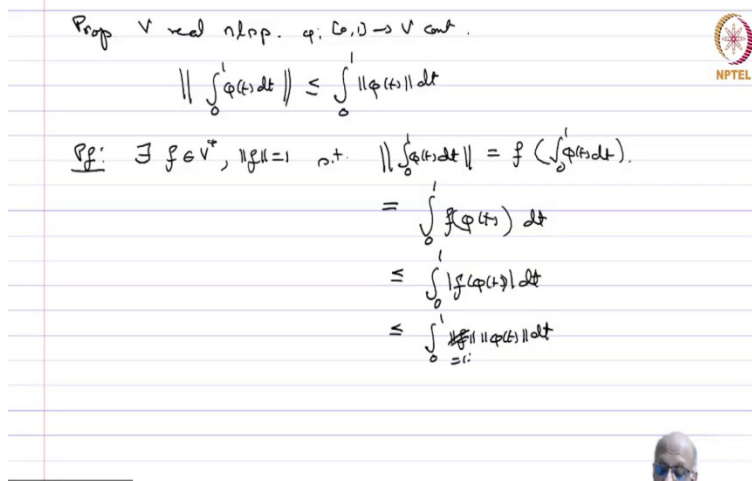 Prop V real nlsp. φ: [0,1] → V cont.
|| ∫₀¹ φ(t) dt || ≤ ∫₀¹ ||φ(t)|| dt
NPTEL
Pf: ∃ f ∈ V*, ||f||=1 s.t. || ∫₀¹ φ(t) dt || = f ( ∫₀¹ φ(t) dt ).
= ∫₀¹ f(φ(t)) dt
≤ ∫₀¹ |f(φ(t))| dt
≤ ∫₀¹ ||f|| ||φ(t)|| dt
=1.